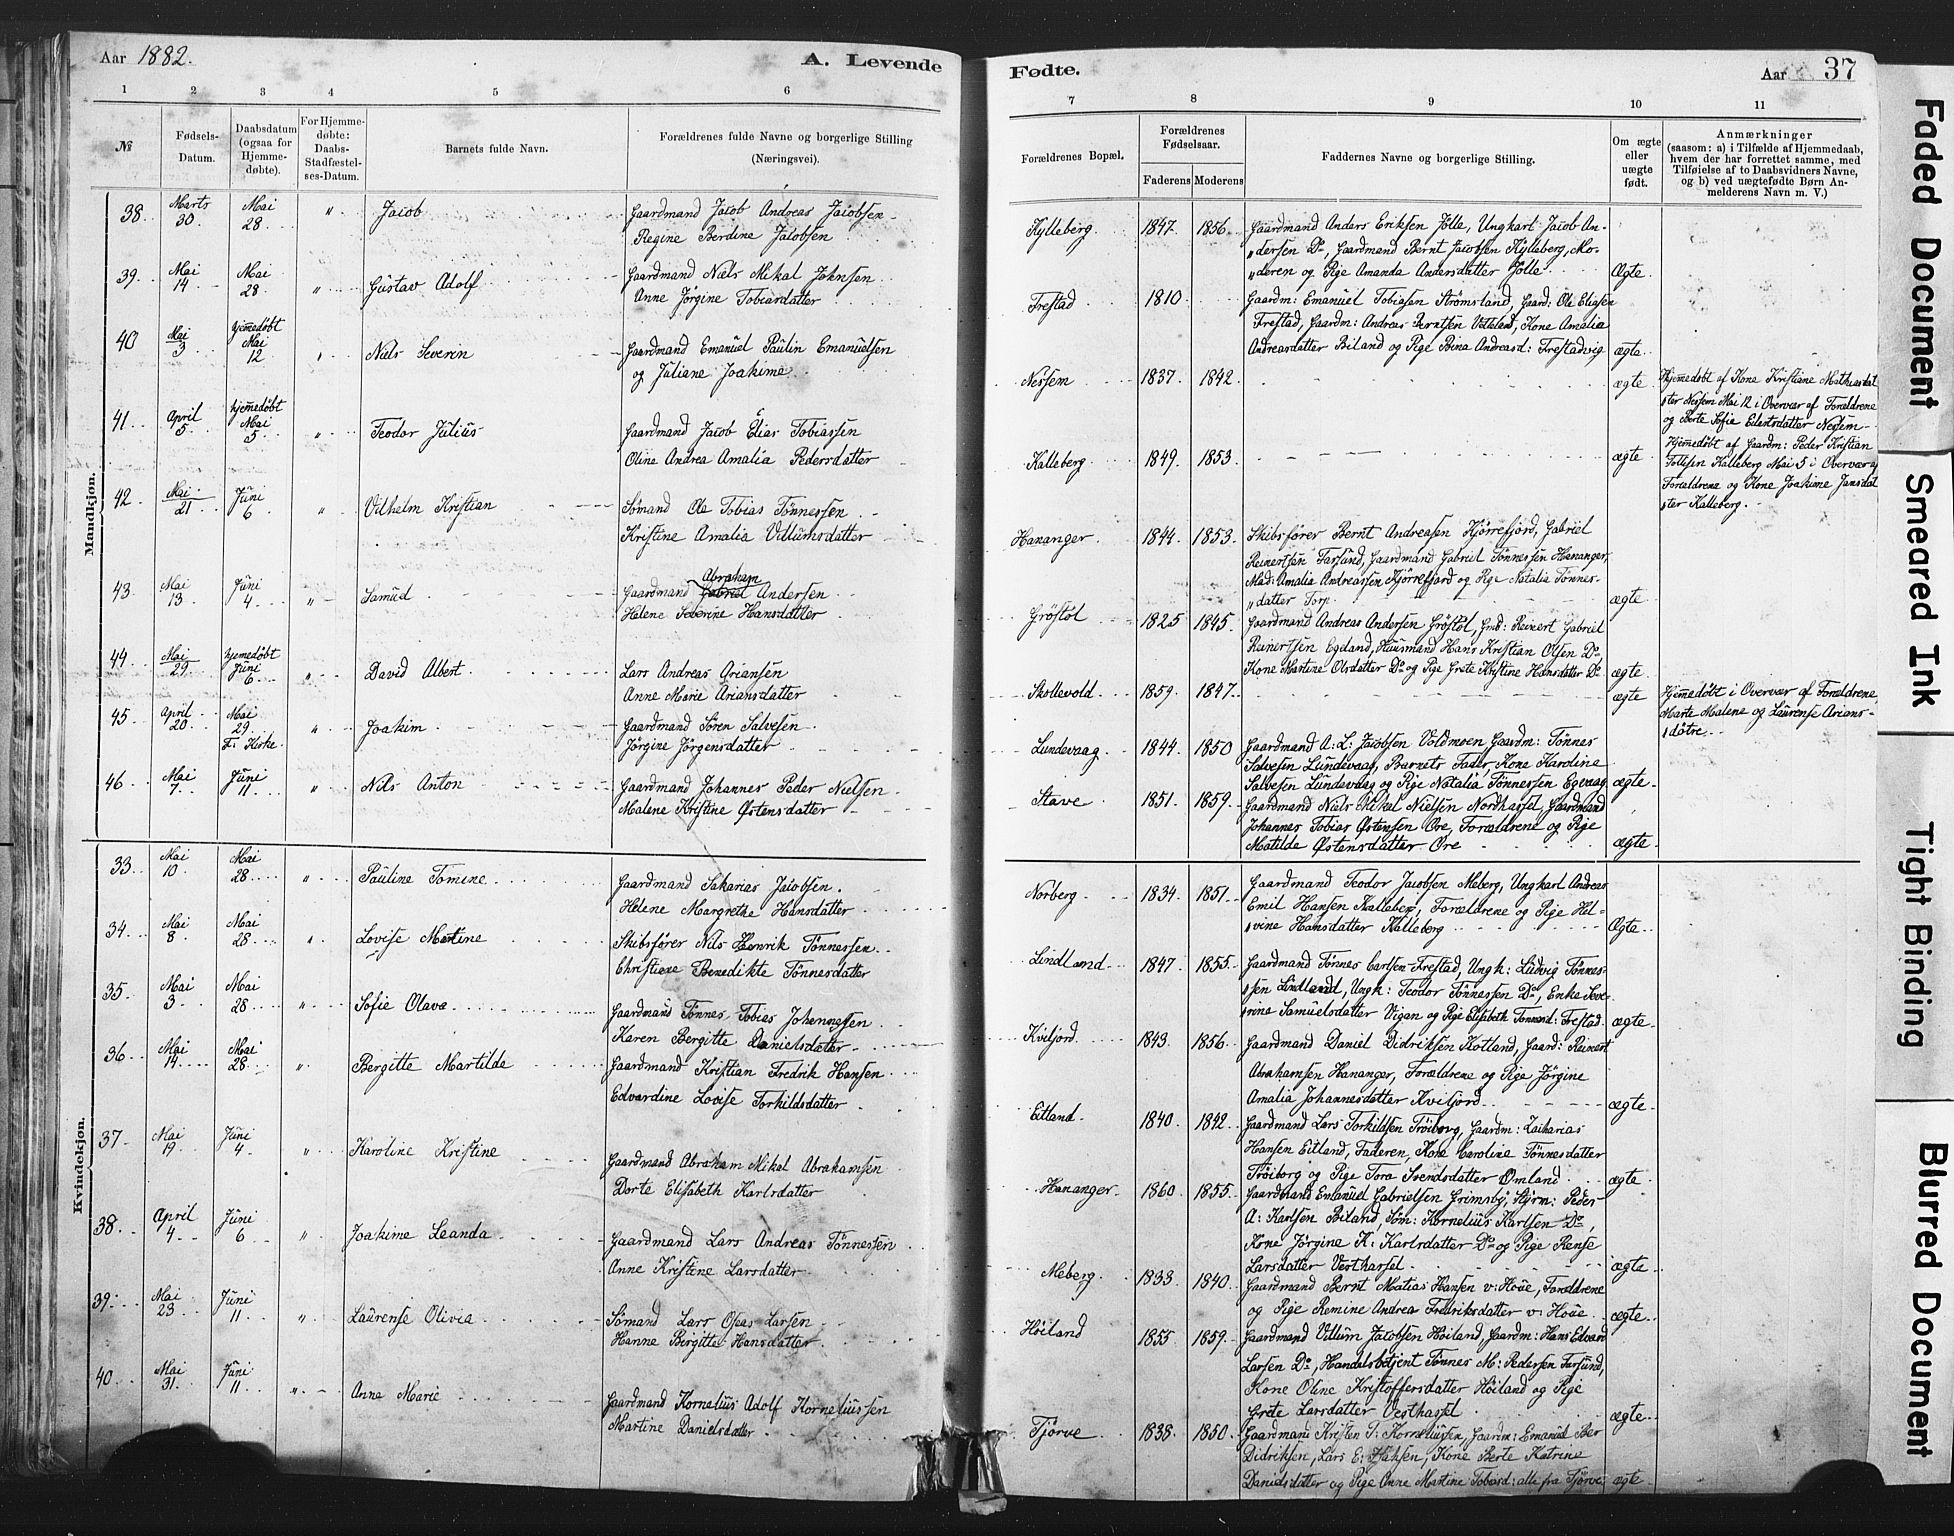 Aar 1882.
A. Levende
1 2 3 4 5 6
№
Fødsels-
Datum.
Daabsdatum
(ogsaa for
Hjemme-
døbte).
For Hjemme-
døbte:
Daabs-
Stadfæstel-
ses-Datum.
Barnets fulde Navn.
Forældrenes fulde Navne og borgerlige Stilling
(Næringsvei).
Mandkjøn.
38. Marts 30. Mai 28. " Jacob
Gaardmand Jacob Andreas Jacobsen
Regine Berdine Jacobsen
39. Mai 14 Mai 28. " Gustav Adolf
Gaardmand Niels Mikal Johnsen
Anne Jørgine Tobiasdatter
40 Mai 3 hjemedøbt Mai 12 " Niels Severin
Gaardmand Emanuel Paulin Emanuelsen
og Juliane Joakime
41 April 5 hjemedøbt Mai 5 " Teodor Julius
Gaardmand Jacob Elias Tobiassen
Oline Andrea Amalia Pedersdatter
42 Mai 21 Juni 6 " Vilhelm Kristian
Sømand Ole Tobias Tønnessen
Kristine Amalia Villumsdatter
43 Mai 13 Juni 4 " Samuel
Abraham
Gaardmand Gabriel Andersen
Helene Severine Hansdatter
44 Mai 29 hjemedøbt Juni 6 " David Albert
Lars Andreas Ariansen
Anne Marie Ariansdatter
45 April 20 Mai 29 F: Kirke. " Joakim
Gaardmand Søren Salvesen
Jørgine Jørgensdatter
46 Mai 7 Juni 11 " Nils Anton
Gaardmand Johannes Peder Nielsen
Malene Kristine Østensdatter
Kvindekjøn.
33 Mai 10 Mai 28 " Pauline Tomine
Gaardmand Sakarias Jacobsen.
Helene Margrethe Hansdatter
34 Mai 8 Mai 28 " Lovise Martine
Skibsfører Nils Henrik Tønnessen
Christiane Benedikte Tønnesdatter
35 Mai 3 Mai 28 " Sofie Olava
Gaardmand Tønnes Tobias Johannessen
Karen Bergitte Danielsdatter
36 Mai 14 Mai 28 " Bergitte Martilde
Gaardmand Kristian Fredrik Hansen
Edvardine Lovise Torkildsdatter
37 Mai 19 Juni 4 " Karoline Kristine
Gaardmand Abraham Mikal Abrahamsen
Dorte Elisabeth Karlsdatter
38 April 4 Juni 6 " Joakime Leanda
Gaardmand Lars Andreas Tønnessen
Anne Kristine Larsdatter
39 Mai 23 Juni 11 " Laurense Olivia
Sømand Lars Oseas Larsen
Hanne Bergitte Hansdatter
40 Mai 31 Juni 11 " Anne Marie
Gaardmand Kornelius Adolf Korneliussen
Martine Danielsdatter
Fødte.
Aar 37
7 8 9 10 11
Forældrenes Bopæl.
Forældrenes
Fødselsaar.
Faderens Moderens
Faddernes Navne og borgerlige Stilling.
Om ægte
eller
uægte
født.
Anmærkninger
(saasom: a) i Tilfælde af Hjemmedaab,
hvem der har forrettet samme, med
Tilføielse af to Daabsvidners Navne,
og b) ved uægtefødte Børn An-
melderens Navn m. V.)
Kylleberg 1847. 1856. Gaardmand Anders Eriksen Jolle, Ungkarl Jacob An-
"dersen Do, Gaardmand Bernt Jacobsen Kylleberg, Mo-
"deren og Pige Amanda Andersdatter Jolle Ægte
Frestad 1810 Gaardm: Emanuel Tobiasen Strømsland, Gaard: Ole Eliasen
Frestad, Gaardm: Andreas Berntsen Vetland, Kone Amalia
Andreasdatter Biland og Pige Bina Andreasd: Frestadvig ægte
Nessem 1837. 1842. ægte
Hjemedøbt af Kone Kristiane Mathiasdat
ter Nessem Mai 12 i Overvær af Forældrene
og Berte Sofie Edentsdatter Nessem
Kalleberg 1849. 1853. ægte
Hjemedøbt af Gaardm: Peder Kristian
Tollisen Kalleberg Mai 5 i Overvær af
Forældrene og Kone Joakime Jansdat
ter Kalleberg.
Hananger 1844. 1853. Skibsfører Bernt Andreasen Kjørrefjord, Gabriel
Reinertsen Farsund, Gaardmand Gabriel Tønnessen Hananger,
Mad: Amalia Andreassen Kjørrefjord og Pige Natalia Tønnes-
"datter Torp. ægte
Grøstøl 1825 1845. Gaardmand Andreas Andersen Grøstøl, Gmd: Reinert Gabriel
Reinertsen Egeland, Huusmand Hans Kristian Olsen Do
Kone Martine Olsdatter Do og Pige Grete Kristine Hansdatter Do ægte
Skollevold 1859. 1847. ægte
Hjemedøbt i Overvær af Forældrene,
Marte Malene og Laurense Arians-
døtre.
Lundevaag 1844. 1850 Gaardmand A: L: Jacobsen Voldmoen Gaardm: Tønnes
Salvesen Lundevaag, Barnets Fader Kone Karoline
Salvesen Lundevaag og Pige Natalia Tønnessen Egevaag ægte
Stave 1851. 1859. Gaardmand Niels Mikel Nielsen Nordhassel, Gaardmand
Johannes Tobias Østensen Ore, Forældrene og Pige
Matilde Østensdatter Ore ægte
Norberg 1834. 1851. Gaardmand Teodor Jacobsen Meberg, Ungkarl Andreas
Emil Hansen Kalleberg, Forældrene og Pige Hel-
vine Hansdatter Kalleberg Ægte
Lindland 1847. 1855. Gaardmand Tønnes Carlsen Frestad, Ungk: Ludvig Tønnes-
sen Lindland, Ungk: Teodor Tønnessen Do, Enke Seve-
rine Samuelsdatter Vigan og Pige Elisabeth Tønnesd: Frestad. ægte
Kviljord 1843. 1856. Gaardmand Daniel Didriksen Kotland, Gaard: Reinert
Abrahamsen Hananger, Forældrene og Pige Jørgine
Amalia Johannesdatter Kviljord ægte
Eitland 1840. 1842. Gaardmand Lars Torkildsen Trøiborg, Gaardm: Zacharias
Hansen Eitland, Faderen, Kone Caroline Tønnesdatter
Trøiborg og Pige Tora Svendsdatter Omland ægte
Hananger 1860. 1855. Gaardmand Emanuel Gabrielsen Grimsby, Styrm: Peder
A: Karlsen Biland, Søm: Kornelius Karlsen Do,
Kone Jørgine K: Karlsdatter Do og Pige Rense
Larsdatter Vesthassel ægte
Meberg 1833. 1840. Gaardmand Bernt Matias Hansen v: Houe, Forældrene
og Pige Remine Andrea Fredriksdatter v: Houe ægte
Høiland 1855. 1859. Gaardmand Villum Jacobsen Høiland, Gaardm: Hans Edvard
Larsen Do, Handelsbetjent Tønnes M: Pedersen Farsund,
Kone Oline Kristoffersdatter Høiland og Pige
Grete Larsdatter Vesthassel ægte
Tjørve 1838. 1850. Gaardmand Kristen T: Korneliussen, Gaardm: Emanuel Ber
Didriksen, Lars E: Kone Berte Katrine
Danielsdatter og Pige Anne Martine Tobiasd: alle fra Tjørve ægte
Faded Document
Smeared Ink
Tight Binding
Blurred Document